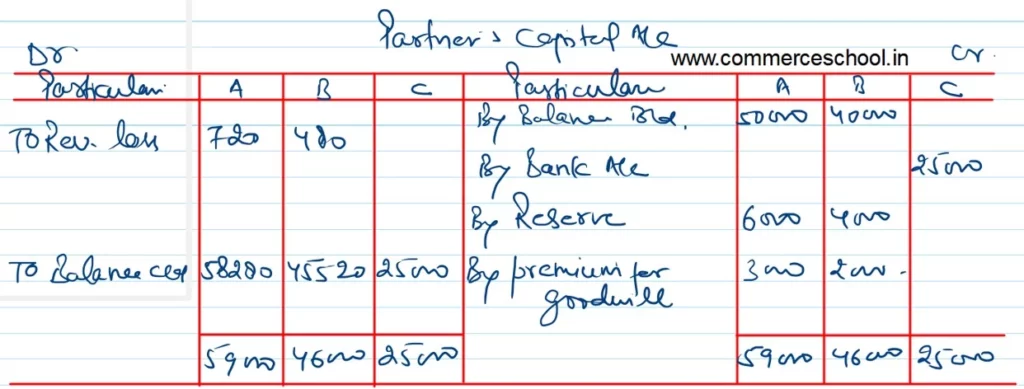 Partner's Capital A/c
www.commerceschool.in
Dr Cr.
Particulars A B C Particulars A B C
To Rev. loss 720 480 By Balance B/d. 50000 40000
By Bank A/c 25000
By Reserve 6000 4000
To Balance c/d 58280 45520 25000 By premium for goodwill 3000 2000
59000 46000 25000 59000 46000 25000